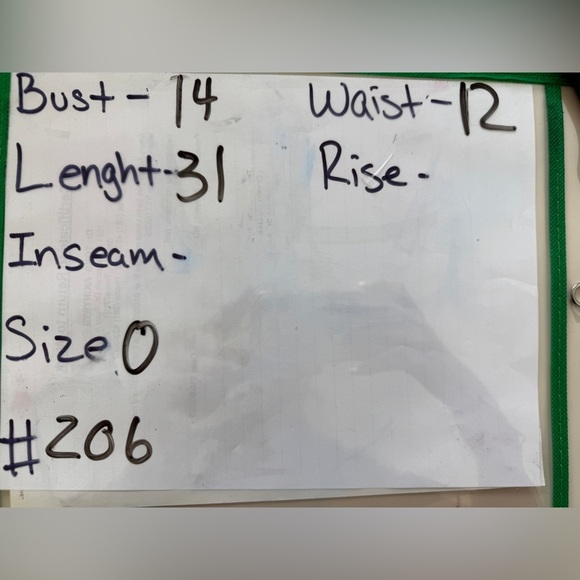 Bust - 14
Waist - 12
Lenght - 31
Rise -
Inseam -
Size 0
#206